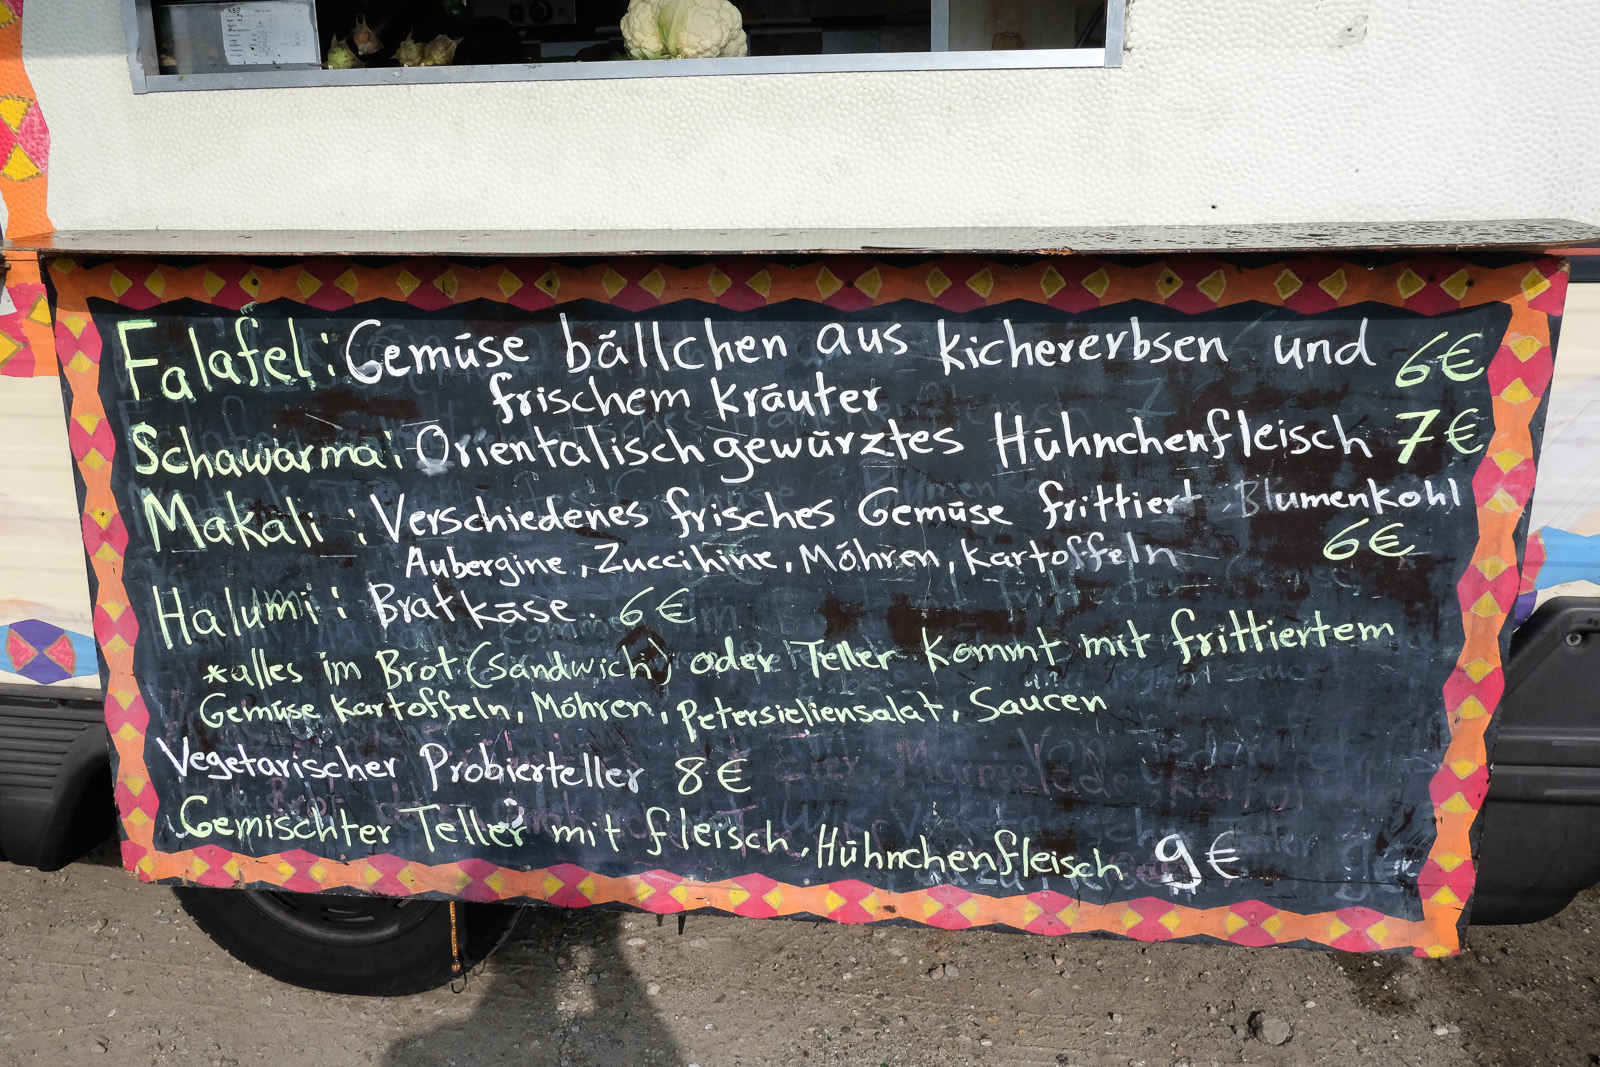 Falafel: Gemüse bällchen aus kichererbsen und 6€
frischem kräuter
Schawarma: Orientalisch gewürztes Hühnchenfleisch 7€
Makali: Verschiedenes frisches Gemüse frittiert Blumenkohl
Aubergine, Zuccihine, Möhren, kartoffeln 6€
Halumi: Bratkäse. 6€
*alles im Brot (Sandwich) oder Teller kommt mit frittiertem
Gemüse kartoffeln, Möhren, petersieliensalat, Saucen
Vegetarischer Probierteller 8€
Gemischter Teller mit fleisch, Hühnchenfleisch 9€